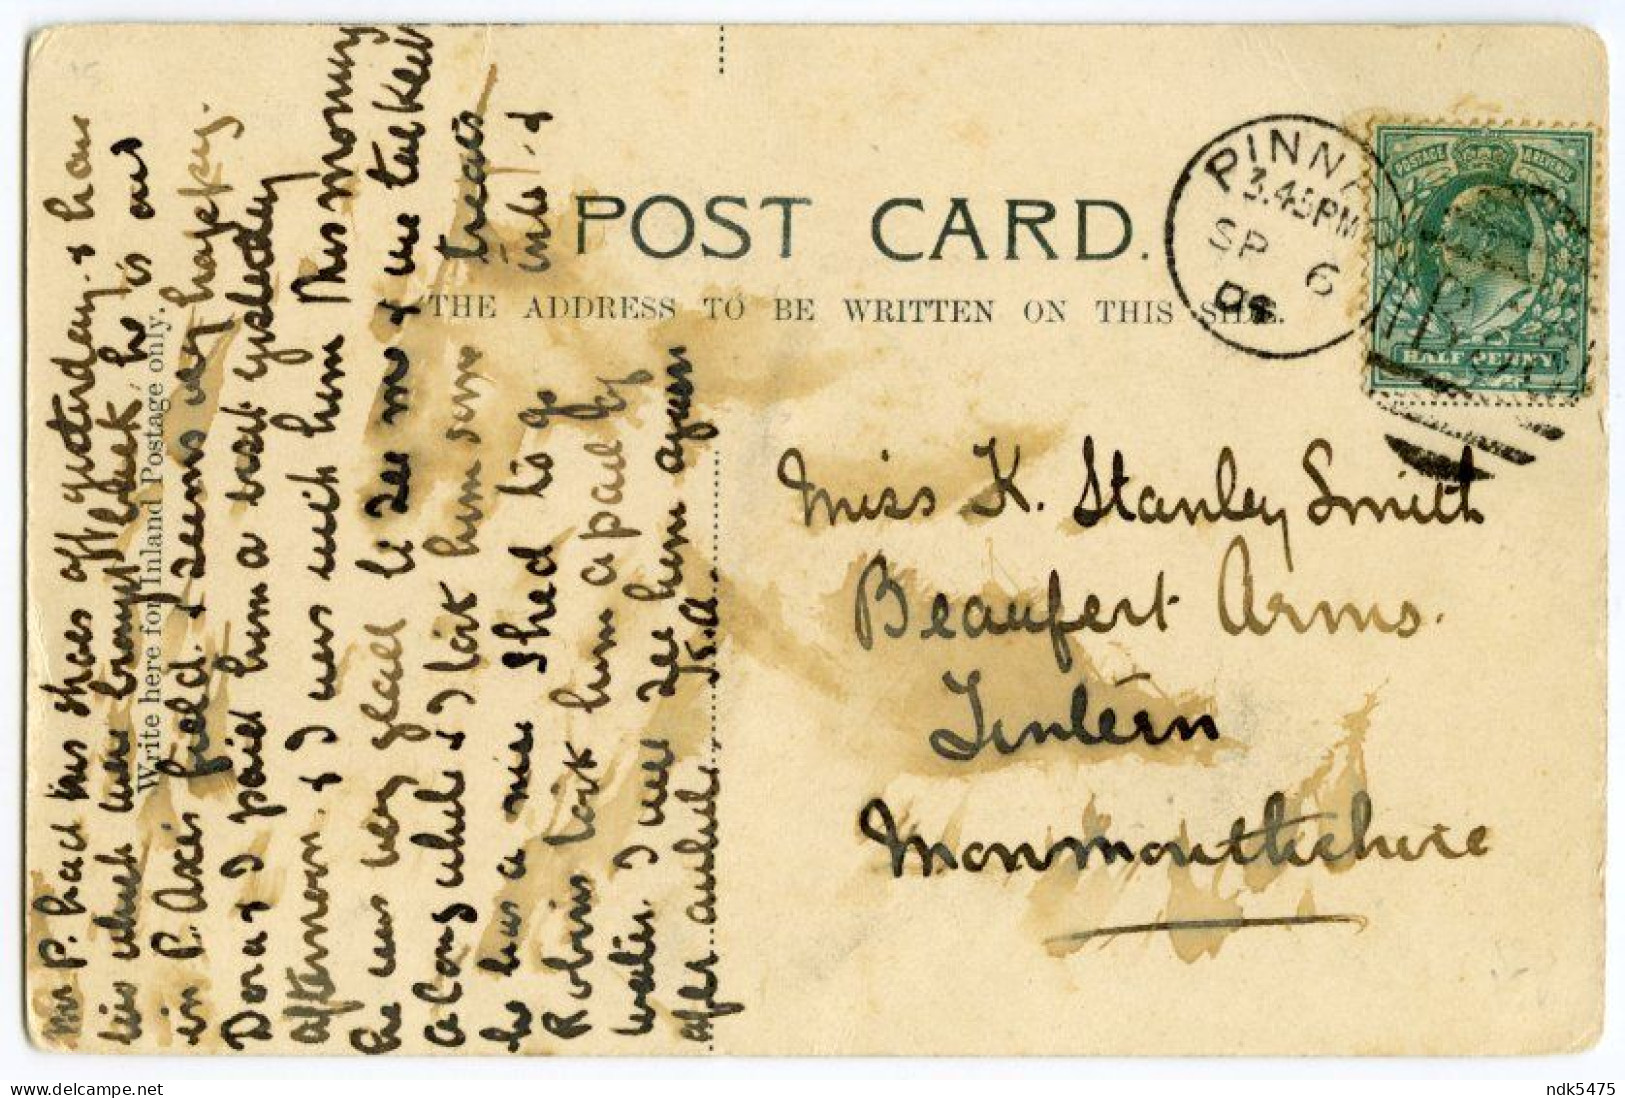 POST CARD.
THE ADDRESS TO BE WRITTEN ON THIS SIDE.
Write here for Inland Postage only.
PINNER
3.45PM
SP 6
04
POSTAGE & REVENUE
HALF PENNY
Miss K. Stanley Smith
Beaufort Arms.
Tintern
Monmouthshire
Mr P. had his shoes off yesterday. & has
his which were brought back, he is out
in P. field. & seems very happy.
Dora & I paid him a visit yesterday
afternoon. & I was with him this morning
he was very glad to see me & we talked
a long while & I took him some treats
he has a nice shed to go into. &
Robins took him a pail of
water. I will see him again
after
ndk5475